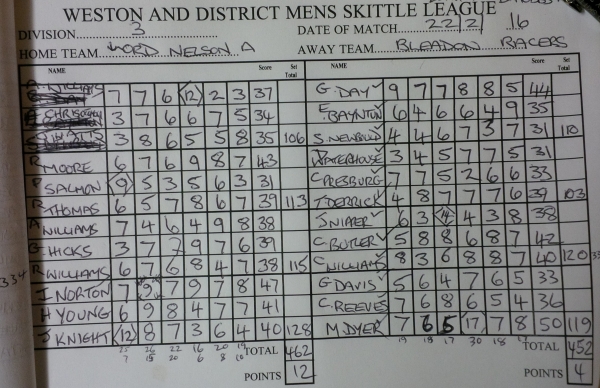 WESTON AND DISTRICT MENS SKITTLE LEAGUE
DIVISION 3 DATE OF MATCH 22/2/16
HOME TEAM LORD NELSON A AWAY TEAM BLEADON RACERS
NAME Score Set Total NAME Score Set Total
A WILLIAMS 7 7 6 12 2 3 37 G. DAY 9 7 7 8 8 5 44
3 7 6 6 7 5 34 E. BAYNTON 6 4 6 6 4 9 35
3 8 6 5 5 8 35 106 S. NEWBOLD 4 4 6 7 3 7 31 110
R MOORE 6 7 6 9 8 7 43 WATERHOUSE 3 4 5 7 7 5 31
P SALMON 9 5 3 5 6 3 31 C. PRESBURG 7 7 5 2 6 6 33
R THOMAS 6 5 7 8 6 7 39 113 T. DERRICK 4 8 7 7 7 6 39 103
A WILLIAMS 7 4 6 4 9 8 38 J. SNIPER 6 3 14 4 3 8 38
G. HICKS 3 7 7 9 7 6 39 C. BUTLER 5 8 8 6 8 7 42
334 R WILLIAMS 6 7 6 8 4 7 38 115 C. WILLIAMS 8 3 6 8 8 7 40 120
I. NORTON 7 9 7 9 7 8 47 G. DAVIS 5 6 4 7 6 5 33
H YOUNG 6 9 8 4 7 7 41 C. REEVES 7 6 8 6 5 4 36
J KNIGHT 12 8 7 3 6 4 40 128 M. DYER 7 6 5 17 7 8 50 119
25 26 22 16 20 19 TOTAL 462 19 18 17 30 18 17 TOTAL 452
7 18 20 6 8 10 POINTS 12 POINTS 4